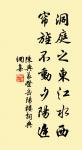 洞庭之東江水西
帘旌不動夕陽遲
陳與義登岳陽樓詞典
網集